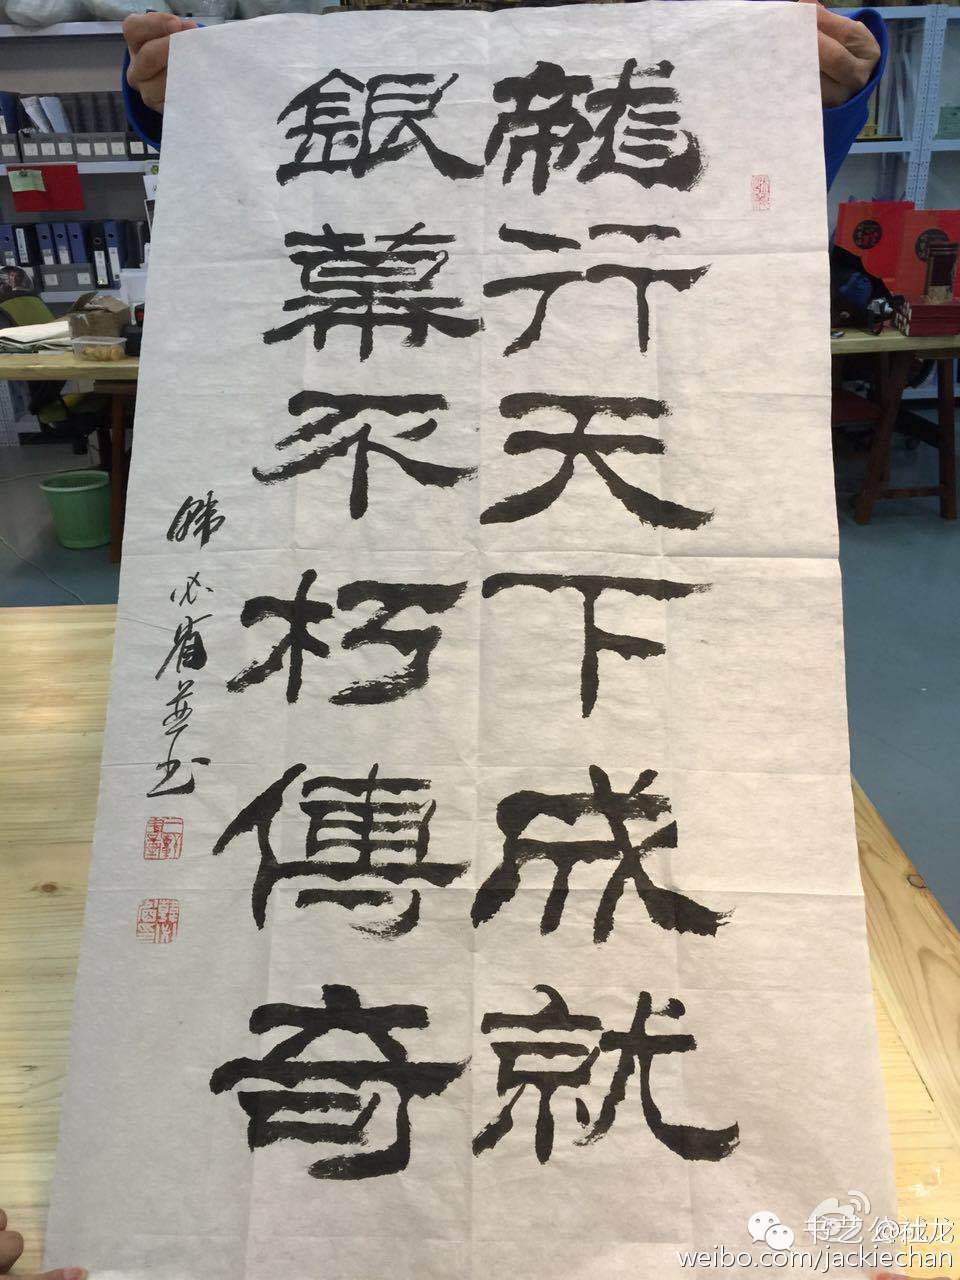 龍行天下成就
銀幕不朽傳奇
韩必省并书
书艺公社
weibo.com/jackiechan